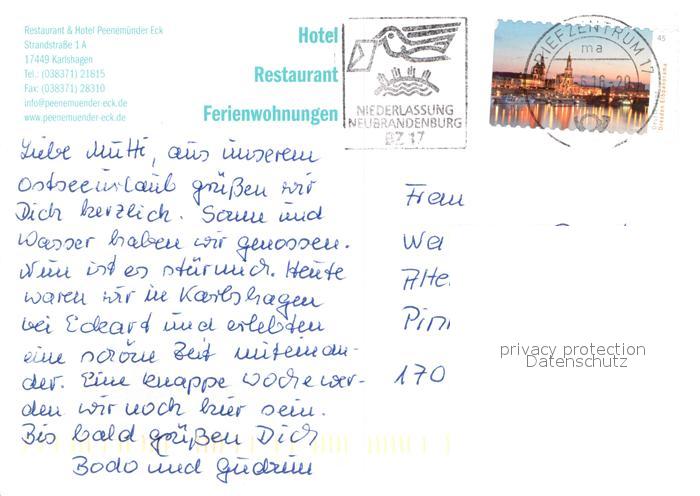 Restaurant & Hotel Peenemünder Eck
Strandstraße 1 A
17449 Karlshagen
Tel.: (038371) 21815
Fax: (038371) 28310
info@peenemuender-eck.de
www.peenemuender-eck.de
Hotel
Restaurant
Ferienwohnungen
NIEDERLASSUNG
NEUBRANDENBURG
BZ 17
BRIEFZENTRUM 17
ma
45
Liebe Mutti, aus unserem
Ostseeurlaub grüßen wir
Dich herzlich. Sonne und
Wasser haben wir genossen.
Nun ist es stürmisch. Heute
waren wir in Karlshagen
bei Eckart und erlebten
eine schöne Zeit miteinan-
der. Eine knappe Woche wer-
den wir noch hier sein.
Bis bald grüßen Dich
Bodo und Gudrun
Frau
We
Alte
Pin
170
privacy protection
Datenschutz